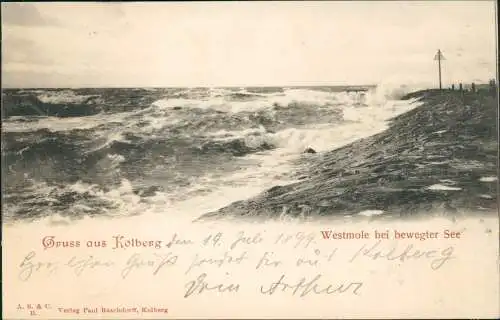 Gruss aus Kolberg den 19. Juli 1899. Westmole bei bewegter See
Gruß für aus Kolberg
Dein Arthur
A. R. & C.
B. Verlag Paul Raschdorff, Kolberg